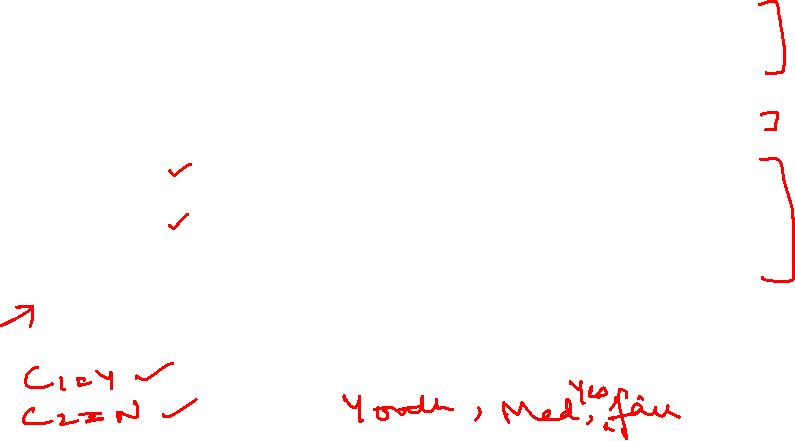 C1=Y
C2=N
Youth, Med, Yes, fair